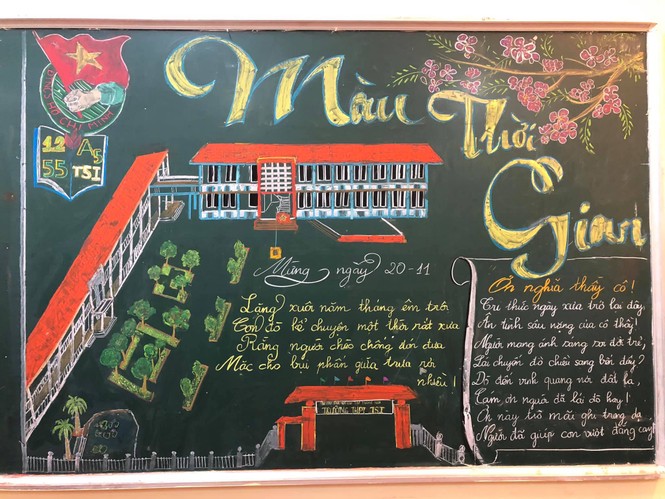 Màu Thời Gian
ĐOÀN TNCS HỒ CHÍ MINH
12 A5
55 TSI
Mừng ngày 20-11
Lặng xuôi năm tháng êm trôi
Con đò kể chuyện một thời rất xưa
Rằng người chèo chống đón đưa
Mặc cho bụi phấn giữa trưa rơi
nhiều!
TRƯỜNG THPT TSI
Ơn nghĩa thầy cô!
Tri thức ngày xưa trở lại đây,
Ân tình sâu nặng của cô thầy!
Người mang ánh sáng soi đời trẻ,
Lái chuyến đò chiều sang bến
Đò đến vinh quang nơi đất lạ,
Cam ơn người đã lái đò hay!
Ơn này trò mãi ghi trong dạ
Người đã giúp con vượt đắng cay!